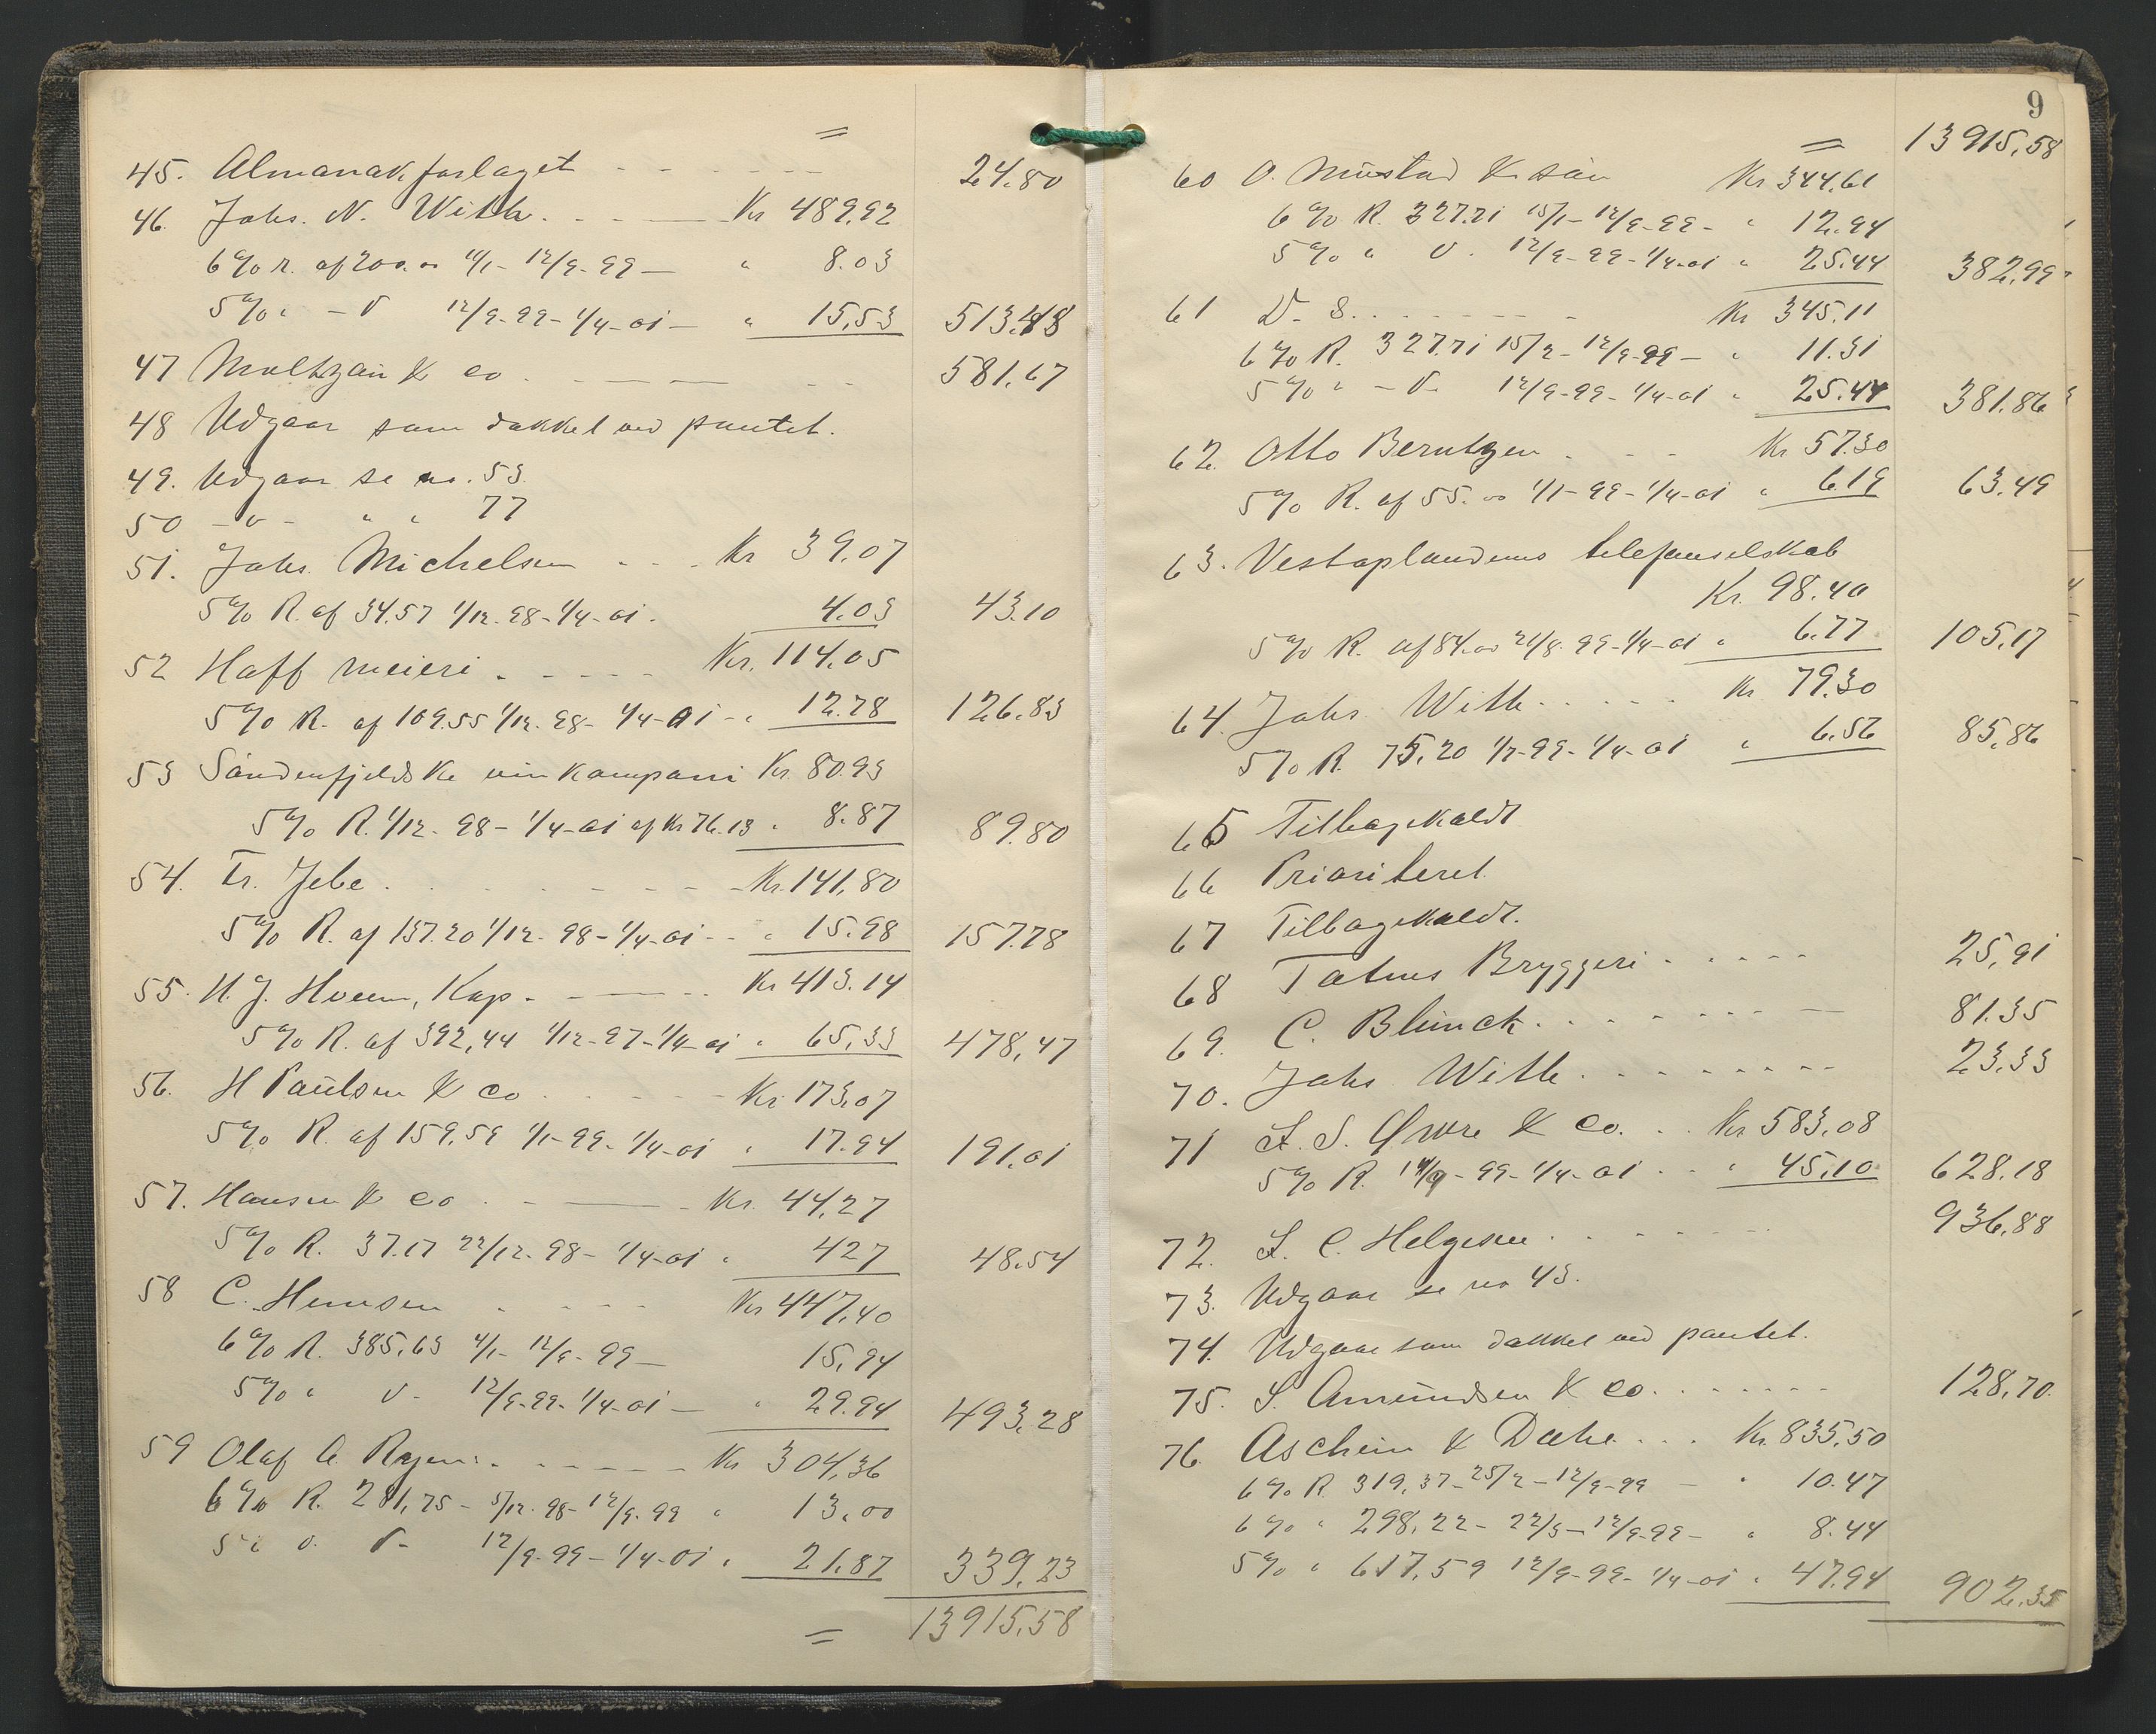 =
45. Almanakforlaget - - - - - - 24.80
46. Johs. N. With. - - - Kr 489.92
6% r. af 200.00 11/1 - 12/9-99 - " 8.03
5% " - v 12/9-99 - 1/4-01 - " 15,53 513.48
47 Moltzau & co. - - - 581,67
48 Udgaar som dækket ved pantet.
49. Udgaar se no. 53
50 - v - " " 77
51. Johs. Michelsen - - - Kr 39,07
5% R. af 34.57 1/12.98 - 1/4-01. 4.03 43.10
52 Hoff meieri. - - - - Kr. 114,05
5% R. af 109.55 1/12.98 - 1/4-01 - " 12.78 126.83
53 Søndenfjeldske vinkompani Kr. 80.93
5% R. 1/12-98 - 1/4-01 af Kr 76.13 " 8.87 89.80
54. Fr. Jebe. - - - - - Kr. 141,80
5% R. af 137.20 1/12-98 - 1/4-01 - " 15.98 157.78
55. H. J. Hveem, Kap. - - - Kr 413.14
5% R. af 392,44 1/12-97 - 1/4-01 " 65,33 478,47
56. H Paulsen & co - - - - Kr. 173,07
5% R. af 159,59 1/1-99 - 1/4-01 " 17.94 191.01
57. Hansen & co. - - - Kr. 44,27
5% R. 37.17 22/12.98 - 1/4-01 " 427 48.54
58 C. Hemsen - - - - Kr 447,40
6% R. 385,63 4/1 - 12/9-99 - 15,94
5% " v - 12/9-99 - 1/4-01 - " 29.94 493,28
59 Olaf A. - - - - - Kr 304,36
6% R. 281,75 - 5/12.98 - 12/9.99 " 13,00
5 " v - 12/9-99 - 1/4-01 " 21,87 339,23
= 13915,58
9
= 13915,58
60 O. Mustad & søn Kr 344,61
6% R. 327.71 15/1 - 12/9-99 - " 12.94
5% " v. 12/9-99 - 1/4-01 " 25.44 382,99
61 D. S. - - - - - Kr 345.11
6% R. 327.71 15/2 - 12/9-99 - " 11.31
5% " - v - 12/9-99 - 1/4-01 " 25.44 381.86
62. Otto Berntzen. - - - Kr 57.30
5% R. af 55.00 1/1-99 - 1/4-01 " 6.19 63.49
63. Vestoplandenes telefonselskab
Kr. 98.40
5% R. af 84.00 21/8.99 - 1/4-01 " 6.77 105,17
64. Johs. With - - - - - Kr 79.30
5% R. 75,20 1/7-99 - 1/4-01 " 6.56 85,86
65 Tilbagekaldt
66 Prioriteret
67 Tilbagekaldt.
68 Totens Bryggeri - - - - - 25,91
69. C. Blunck. - - - - - 81.35
70. Johs With. - - - - - 23.33
71 L. S. & co. . . Kr. 583,08
5% R. 14/9-99 - 1/4-01 . . " 45,10 628.18
72. L. C. Helgesen. - - - - 936,88
73. Udgaar se no 43.
74. Udgaar som dækket ved pantet.
75. S. Amundsen & co. - - - - - 128,70.
76. Aschein & Døhe . . . Kr. 835,50
6% R. 319,37 - 25/2 - 12/9-99 - " 10.47
6% " 298,22 - 22/3 - 12/9-99 - " 8.44
5% " 617,59 12/9-99 - 1/4-01 " 47.94 902,35